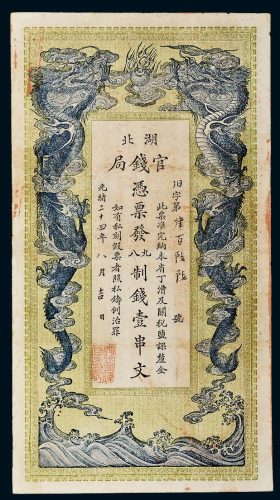 湖北
官錢局
字第肆百陸號
此票準完納本省丁漕及關稅鹽課釐金
憑票發北八制錢壹串文
如有私刻假票者照私鑄例治罪
光緒二十四年八月吉日